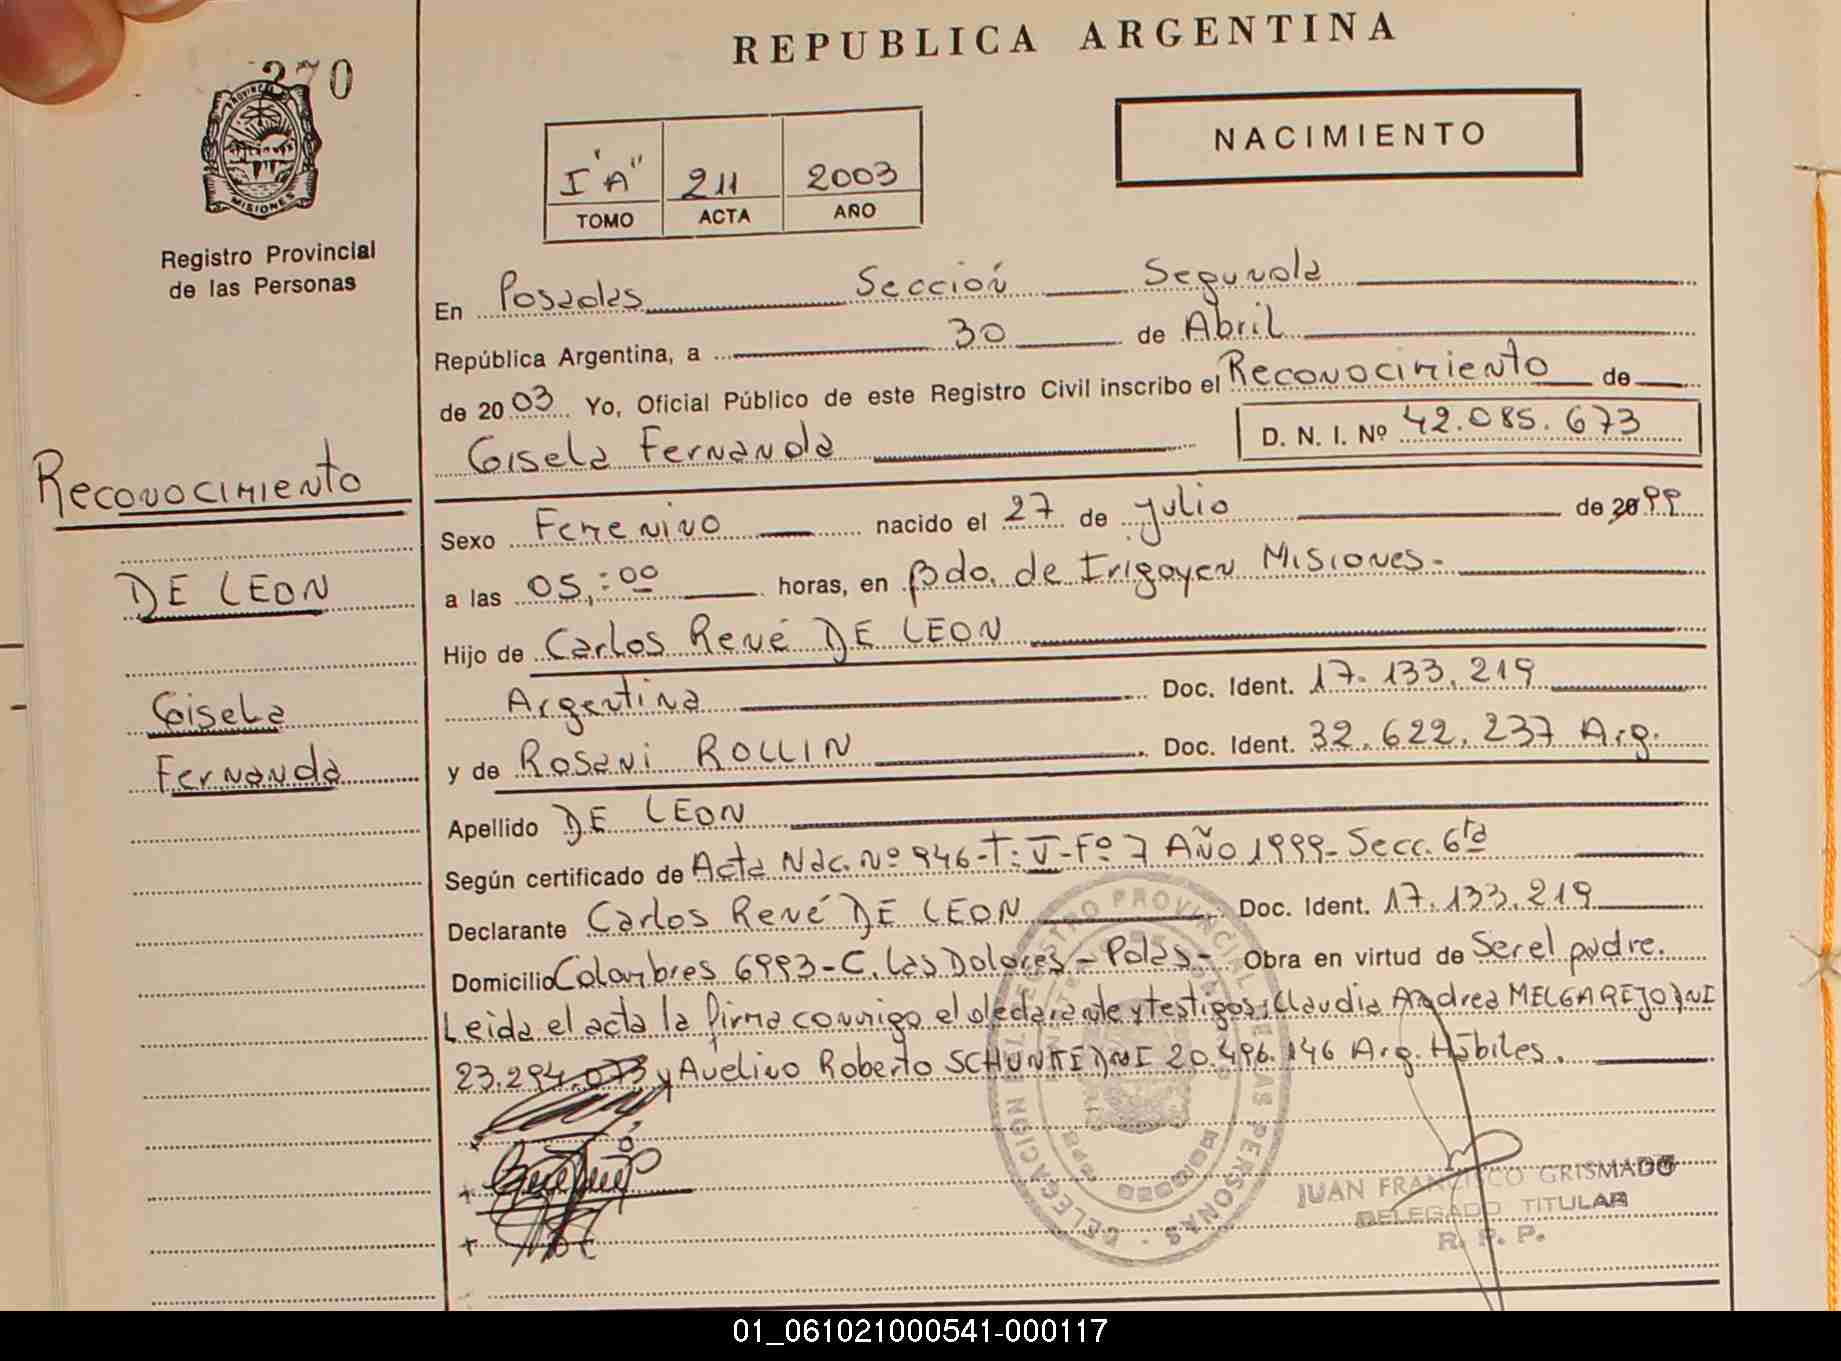 REPUBLICA ARGENTINA
270
PROVINCIA
MISIONES
Registro Provincial
de las Personas
NACIMIENTO
I "A" 211 2003
TOMO ACTA AÑO
En Posadas Sección Segunda
República Argentina, a 30 de Abril
de 2003 Yo, Oficial Público de este Registro Civil inscribo el Reconocimiento de
de Gisela Fernanda D. N. I. Nº 42.085.673
Reconocimiento
DE LEON
Gisela
Fernanda
Sexo Femenino nacido el 27 de julio de 2099
a las 05,:00 horas, en Bdo. de Irigoyen Misiones.-
Hijo de Carlos René DE LEON
Argentina Doc. Ident. 17.133.219
y de Rosani ROLLIN Doc. Ident. 32.622.237 Arg.
Apellido DE LEON
Según certificado de Acta Nac. Nº 946-T: V-Fº 7 Año 1999- Secc. 6ta
Declarante Carlos René DE LEON Doc. Ident. 17.133.219
Domicilio Colombres 6993-C. Las Dolores - Pdas- Obra en virtud de Ser el padre.
Leida el acta la firma conmigo el declarante y testigos: Claudia Andrea MELGAREJO DNI
23.294.073 y Avelino Roberto SCHUNKE DNI 20.496.146 Arg. Hábiles.
JUAN FRANCISCO GRISMADO
DELEGADO TITULAR
R. P. P.
01_061021000541-000117